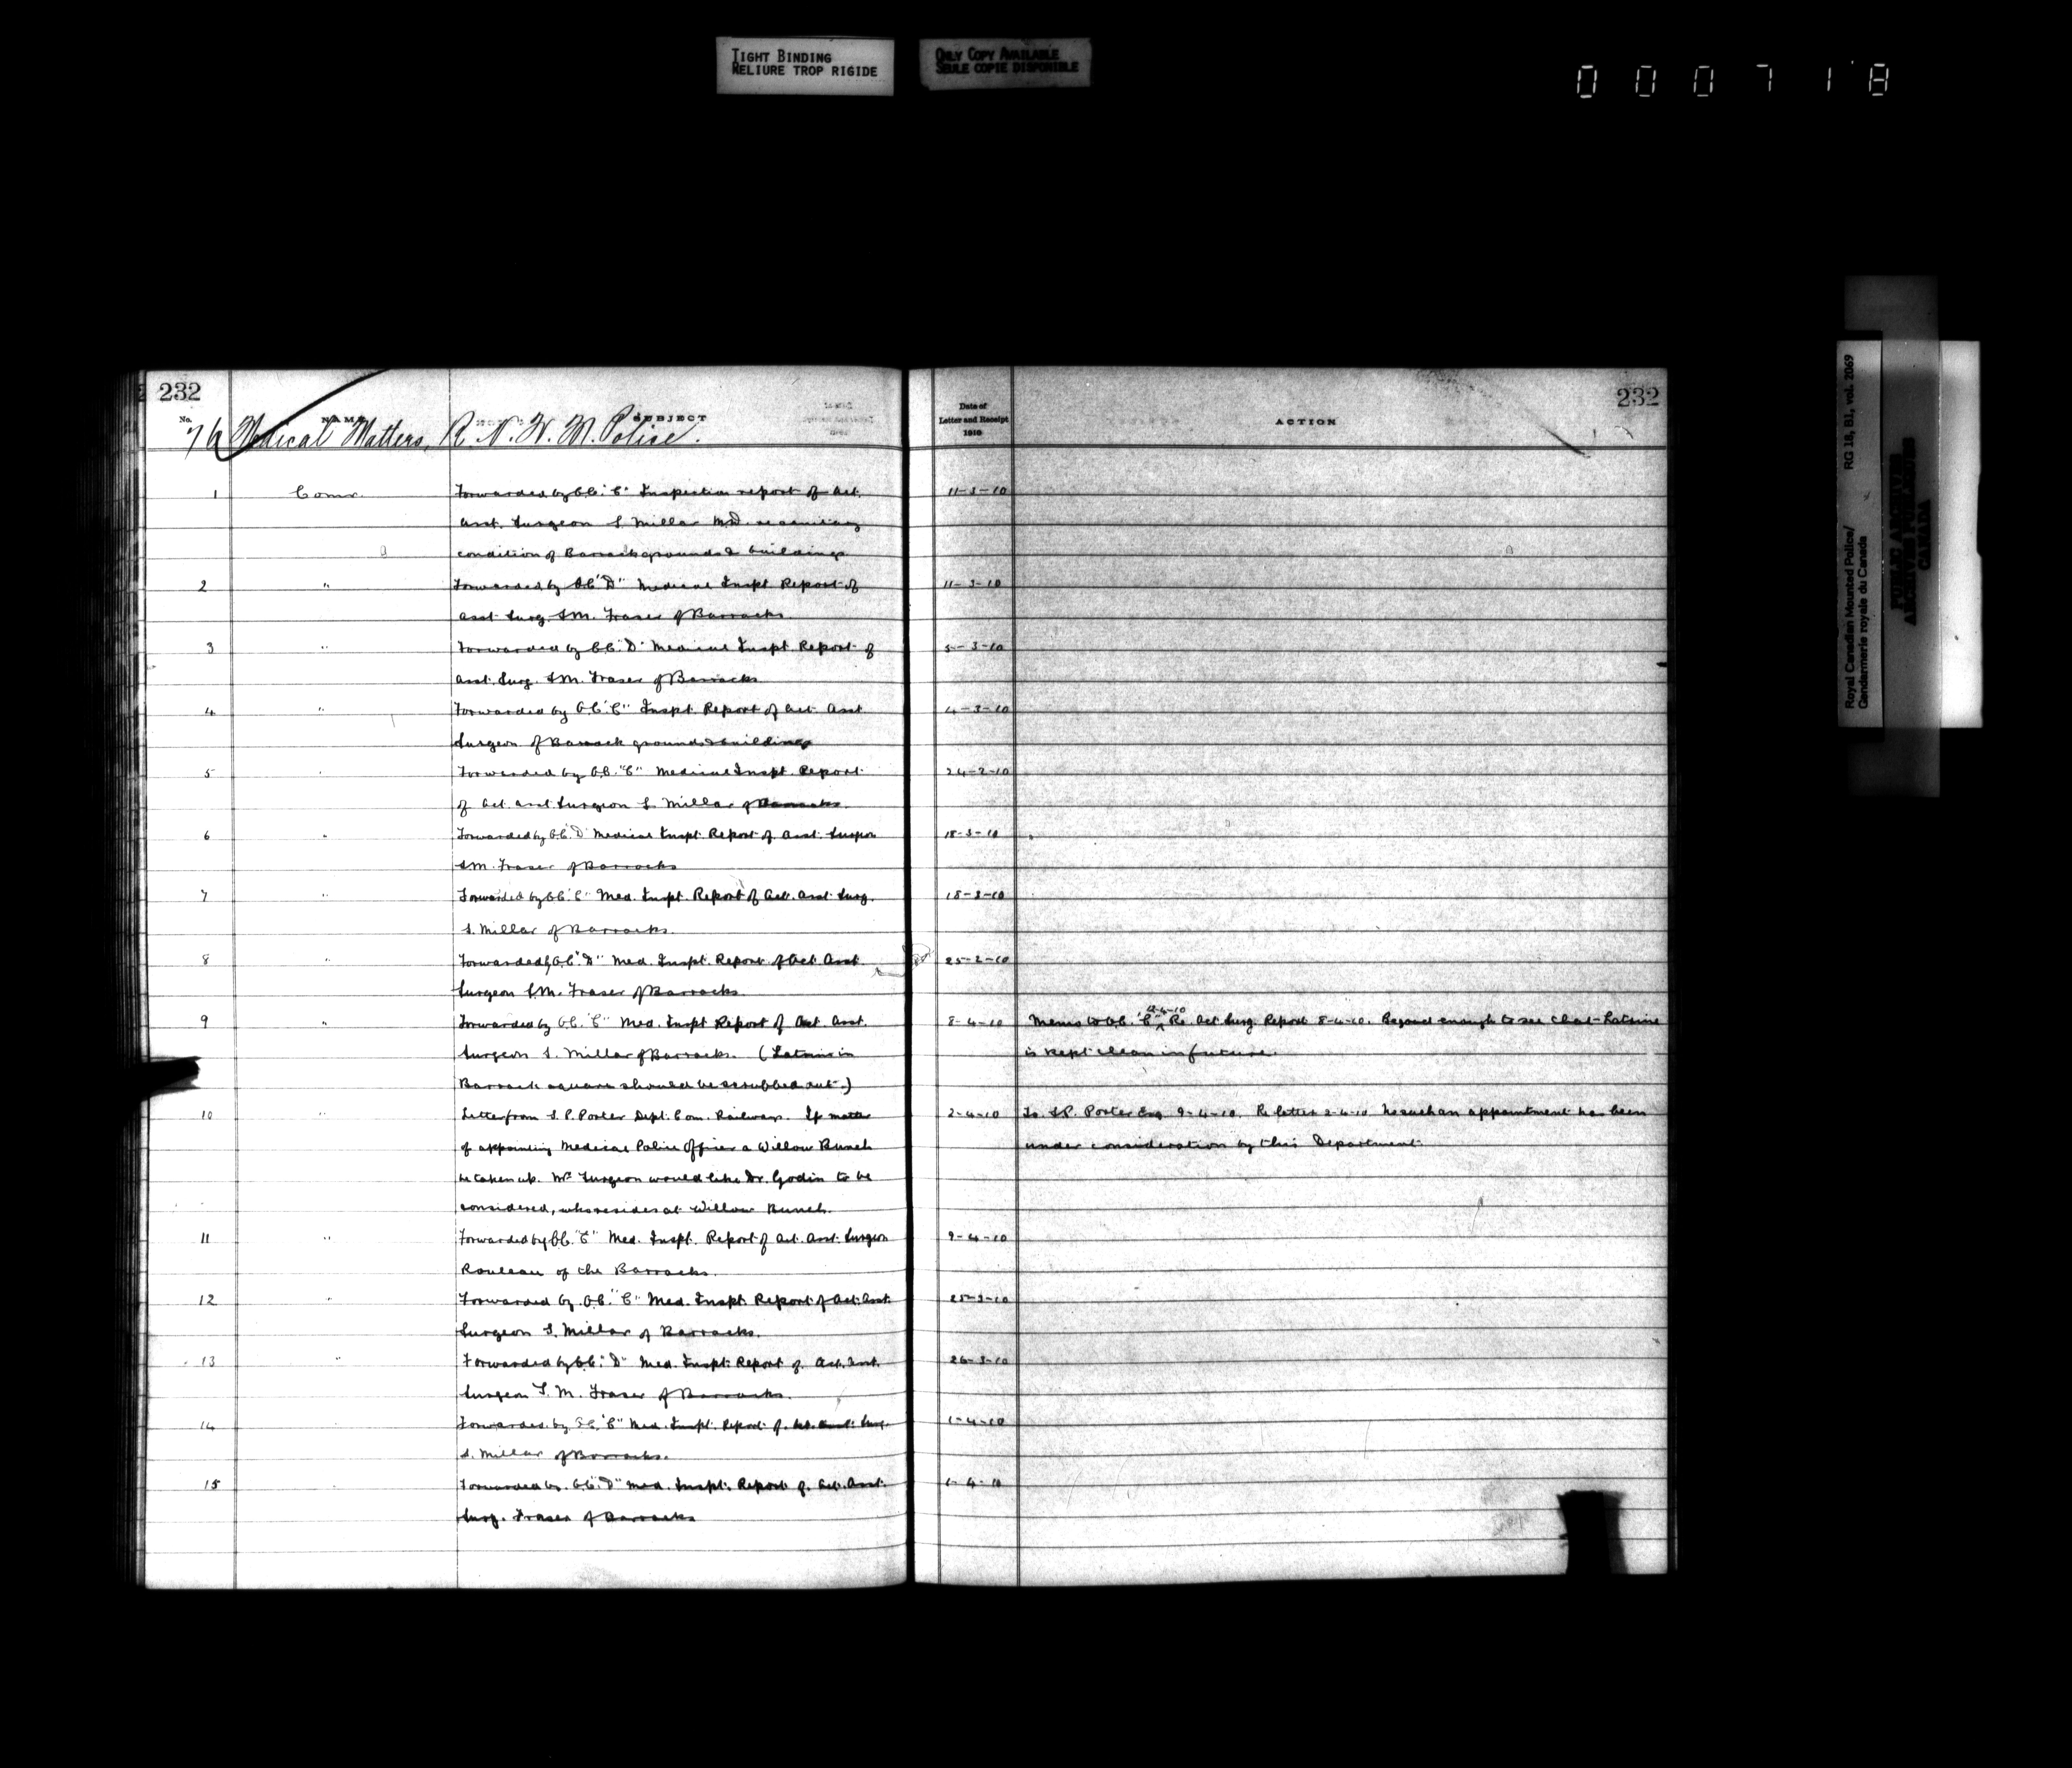 TIGHT BINDING
RELIURE TROP RIGIDE
ONLY COPY AVAILABLE
SEULE COPIE DISPONIBLE
000718
Royal Canadian Mounted Police/ RG 18, B1, vol. 2069
Gendarmerie royale du Canada
PUBLIC ARCHIVES
ARCHIVES PUBLIQUES
CANADA
232
No. NAME SUBJECT
76 Medical Matters, R. N. W. M. Police.
1 Comr. Forwarded by O.C. "C" Inspection report of Act.
Asst. Surgeon S. Millar M.D. re sanitary
condition of Barrack grounds & buildings
2 " Forwarded by O.C. "D" Medical Inspt. Report of
Asst. Surg. S.M. Fraser of Barracks.
3 " Forwarded by O.C. "D" Medical Inspt. Report of
Asst. Surg. S.M. Fraser of Barracks
4 " Forwarded by O.C. "C" Inspt. Report of Act. Asst.
Surgeon of Barrack grounds & buildings
5 " Forwarded by O.C. "C" Medical Inspt. Report
of Act. Asst. Surgeon S. Millar of Barracks.
6 " Forwarded by O.C. "D" Medical Inspt. Report of Asst. Surgeon
S.M. Fraser of Barracks
7 " Forwarded by O.C. "C" Med. Inspt. Report of Act. Asst. Surg.
S. Millar of Barracks.
8 " Forwarded by O.C. "D" Med. Inspt. Report of Act. Asst.
Surgeon S.M. Fraser of Barracks
9 " Forwarded by O.C. "C" Med. Inspt. Report of Act. Asst.
Surgeon S. Millar of Barracks. (Latrine in
Barrack square should be scrubbed out.)
10 " Letter from S. P. Porter Dept. Com. Railways. If matter
of appointing Medical Police Officer a Willow Bunch
be taken up. Mr. Turgeon would like Dr. Godin to be
considered, who resides at Willow Bunch.
11 " Forwarded by O.C. "C" Med. Inspt. Report of Act. Asst. Surgeon
Rouleau of the Barracks.
12 " Forwarded by O.C. "C" Med. Inspt. Report of Act. Asst.
Surgeon S. Millar of Barracks.
13 " Forwarded by O.C. "D" Med. Inspt. Report of Act. Asst.
Surgeon S. M. Fraser of Barracks.
14 " Forwarded by O.C. "C" Med. Inspt. Report of Act. Asst. Surg.
S. Millar of Barracks.
15 " Forwarded by O.C. "D" Med. Inspt. Report of Act. Asst.
Surg. Fraser of Barracks
232
Date of
Letter and Receipt
1910
ACTION
11-3-10
11-3-10
5-3-10
4-3-10
24-2-10
18-3-10
18-3-10
25-2-10
12-4-10
8-4-10 Memo to O.C. "C" Re. Act. Surg. Report 8-4-10. Be good enough to see that Latrine
is kept clean in future.
2-4-10 To S.P. Porter Esq 9-4-10. Re letter 2-4-10. No such an appointment has been
under consideration by this Department.
9-4-10
25-3-10
26-3-10
1-4-10
1-4-10